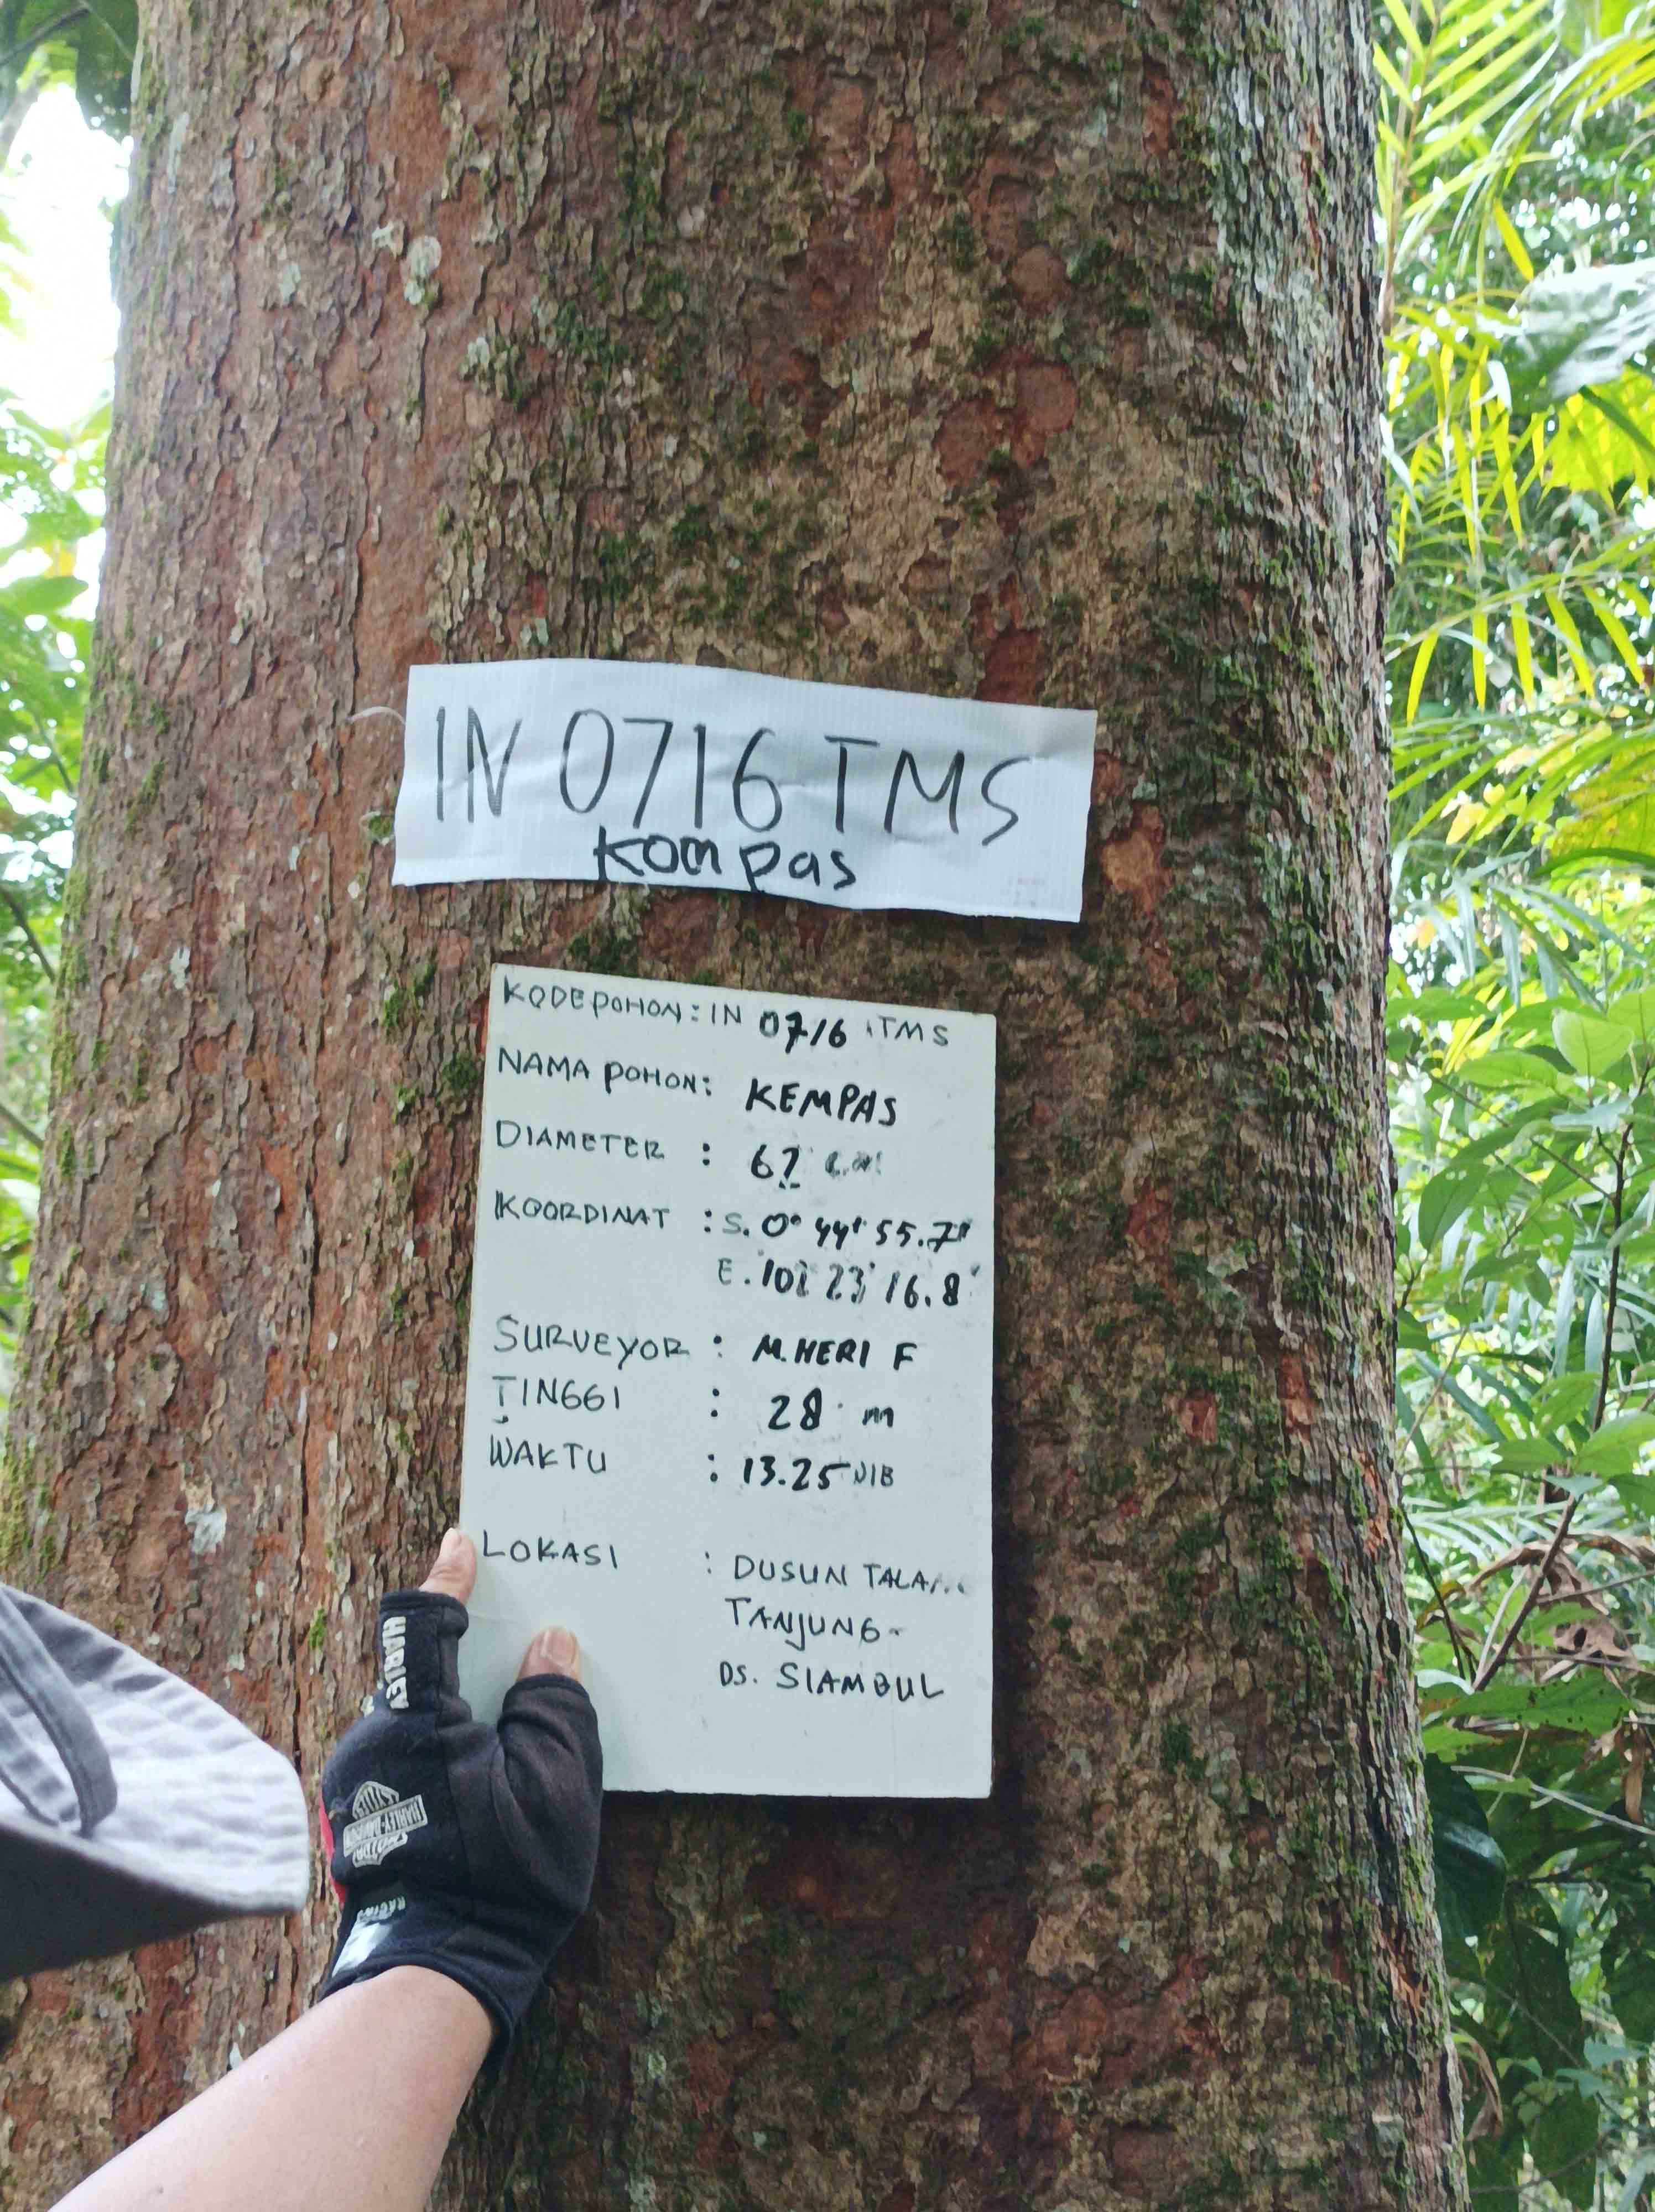 IN 0716 TMS
kompas
KODE POHON: IN 0716 TMS
NAMA POHON: KEMPAS
DIAMETER : 62 cm
KOORDINAT : S. 0° 44' 55.7"
E. 102 23' 16.8"
SURVEYOR : M. HERI F
TINGGI : 28 m
WAKTU : 13.25 WIB
LOKASI : DUSUN
TANJUNG
DS. SIAMBUL
HARLEY
HARLEY-DAVIDSON
RACING